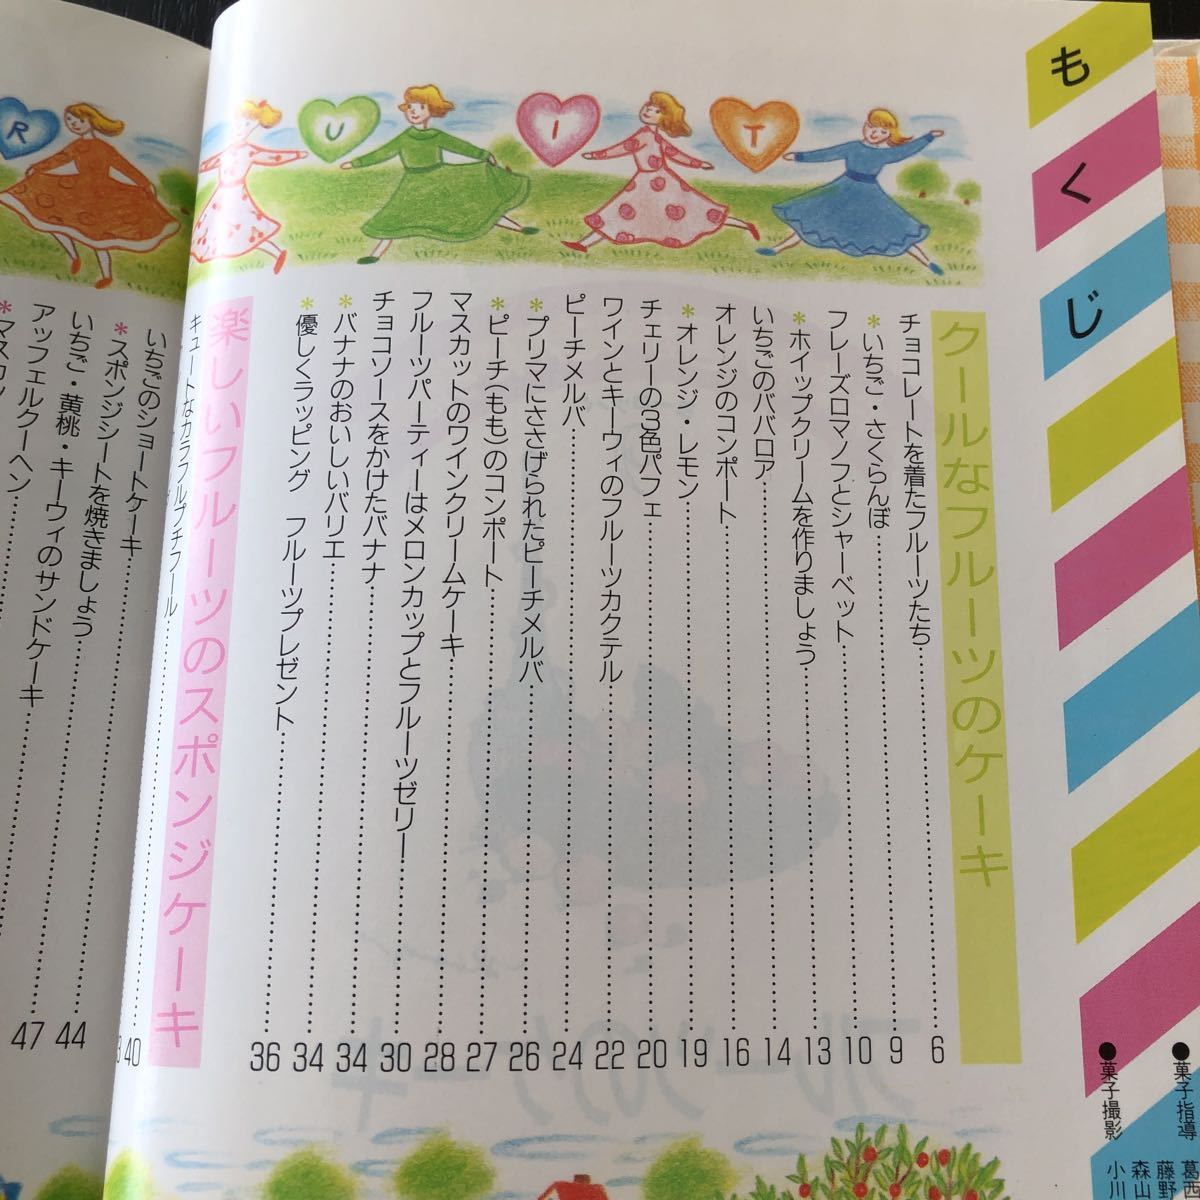 もくじ
R
U
I
T
クールなフルーツのケーキ
チョコレートを着たフルーツたち……6
*いちご・さくらんぼ……9
フレーズロマノフとシャーベット……10
*ホイップクリームを作りましょう……13
いちごのババロア……14
オレンジのコンポート……16
*オレンジ・レモン……19
チェリーの3色パフェ……20
ワインとキーウィのフルーツカクテル……22
ピーチメルバ……24
*プリマにささげられたピーチメルバ……26
*ピーチ(もも)のコンポート……27
マスカットのワインクリームケーキ……28
フルーツパーティーはメロンカップとフルーツゼリー……30
チョコソースをかけたバナナ……34
*バナナのおいしいバリエ……34
*優しくラッピング フルーツプレゼント……36
楽しいフルーツのスポンジケーキ
キュートなカラフルプチフール……40
いちごのショートケーキ……
*スポンジシートを焼きましょう……44
いちご・黄桃・キーウィのサンドケーキ……47
アップフェルクーヘン
*マスカッ
●菓子指導
●菓子撮影
葛西
藤野
森山
小川